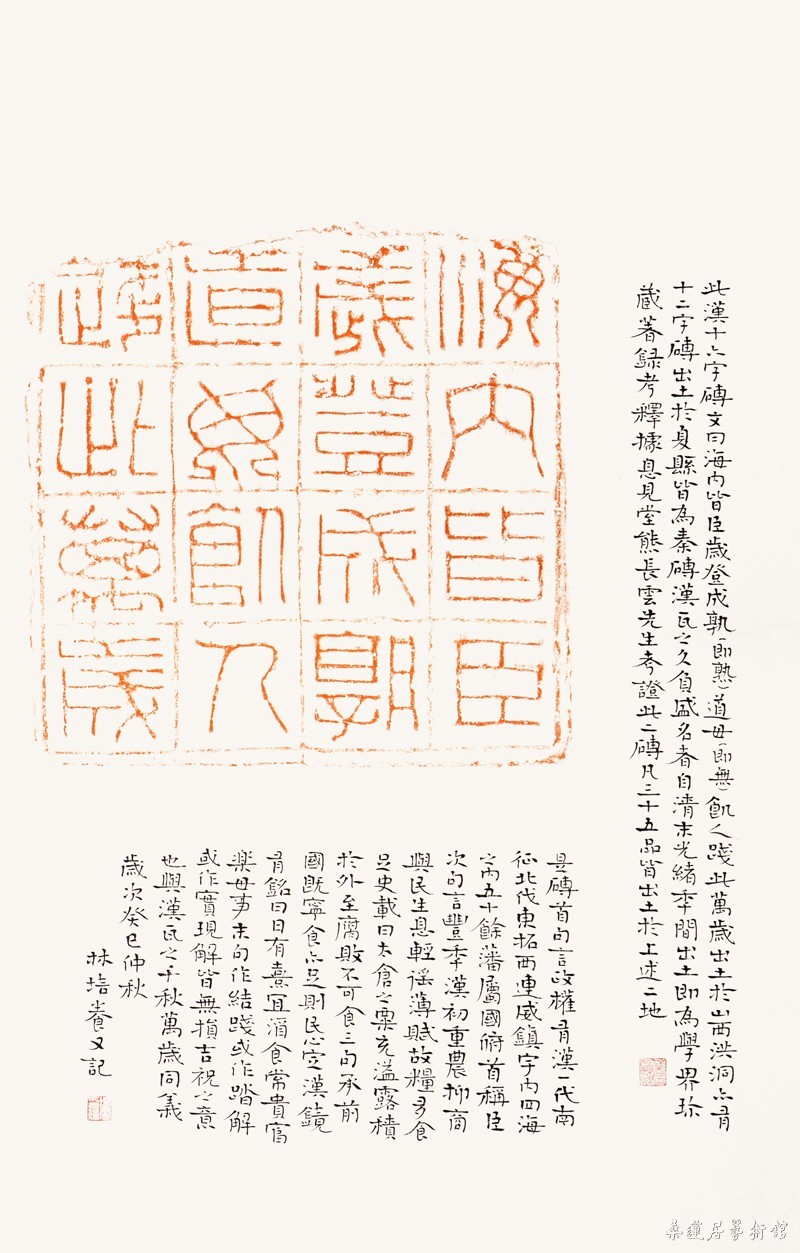 海內皆臣
歲登成孰
道毋飢人
踐此萬歲
此漢十六字磚文曰海內皆臣歲登成孰(即熟)道毋(即無)飢人踐此萬歲出土於山西洪洞亦有
十二字磚出土於夏縣皆為秦磚漢瓦之久負盛名者自清末光緒年間出土即為學界珍
藏著錄考釋據息見堂熊長雲先生考證此二磚凡三十五品皆出土於上述二地
是磚首句言政權有漢一代南
征北伐東拓西連威鎮宇內四海
之內五十餘藩屬國俯首稱臣
次句言豐年漢初重農抑商
與民生息輕徭薄賦故糧多食
足史載曰太倉之粟充溢露積
於外至腐敗不可食三句承前
國既寧食亦足則民心定漢鏡
有銘曰日有熹宜酒食常貴富
樂毋事末句作結踐或作踏解
或作實現解皆無損吉祝之意
也與漢瓦之千秋萬歲同義
歲次癸巳仲秋
林培養又記
桑蓮居藝術館